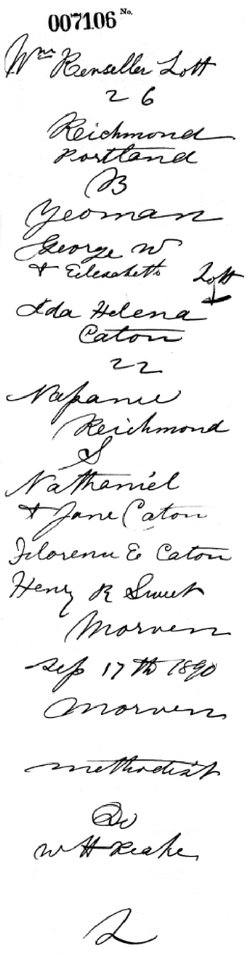 007106 No.
Wm Renseller Lott
26
Richmond
Portland
B
Yeoman
George W
+ Elizabeth Lott
Ida Helena
Caton
22
Napanee
Richmond
S
Nathaniel
+ Jane Caton
Florence E Caton
Henry R Sweet
Morven
Sep 17th 1890
Morven
Methodist
Do
W H Peake
2